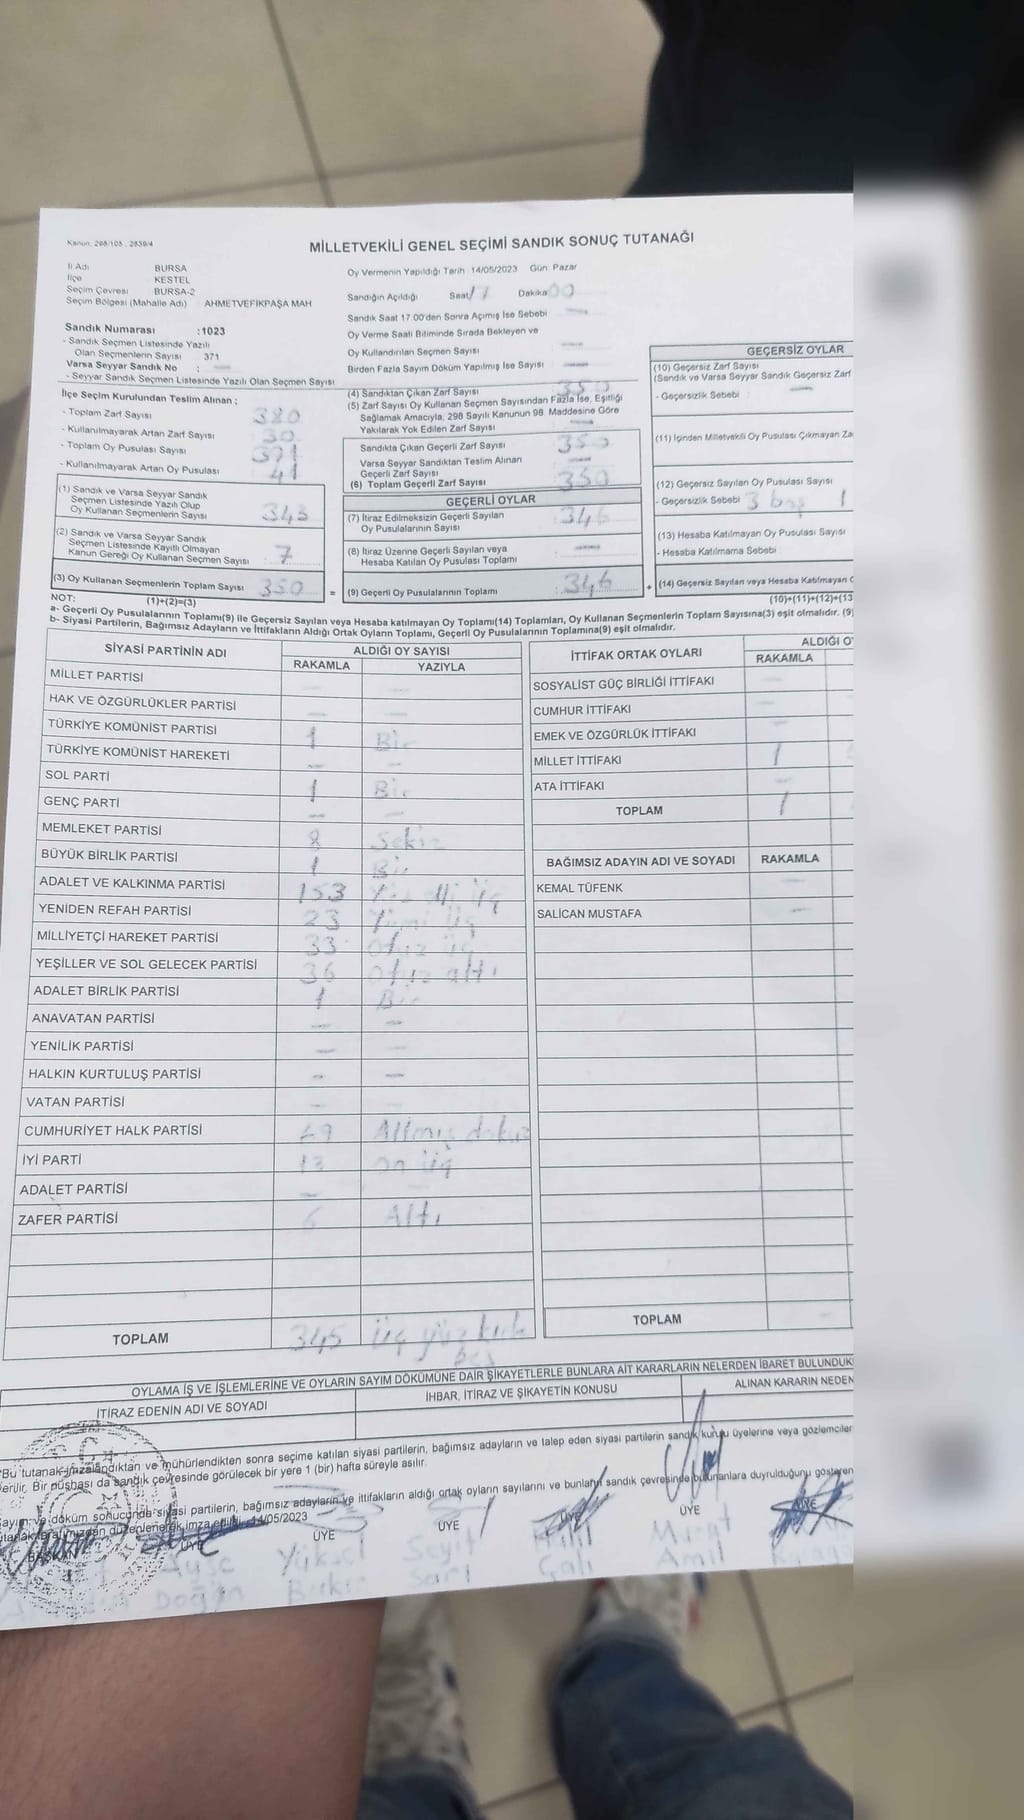 Kanun: 298/105, 2839/4
MİLLETVEKİLİ GENEL SEÇİMİ SANDIK SONUÇ TUTANAĞI
İl Adı BURSA
İlçe KESTEL
Seçim Çevresi BURSA-2
Seçim Bölgesi (Mahalle Adı) AHMETVEFİKPAŞA MAH
Sandık Numarası :1023
- Sandık Seçmen Listesinde Yazılı
Olan Seçmenlerin Sayısı 371
Varsa Seyyar Sandık No : —
- Seyyar Sandık Seçmen Listesinde Yazılı Olan Seçmen Sayısı
Oy Vermenin Yapıldığı Tarih 14/05/2023 Gün: Pazar
Sandığın Açıldığı Saat 17 Dakika 00
Sandık Saat 17.00'den Sonra Açımış İse Sebebi —
Oy Verme Saati Bitiminde Sırada Bekleyen ve
Oy Kullandırılan Seçmen Sayısı —
Birden Fazla Sayım Döküm Yapılmış İse Sayısı —
İlçe Seçim Kurulundan Teslim Alınan ;
- Toplam Zarf Sayısı 380
- Kullanılmayarak Artan Zarf Sayısı 30
- Toplam Oy Pusulası Sayısı 391
- Kullanılmayarak Artan Oy Pusulası 41
(1) Sandık ve Varsa Seyyar Sandık
Seçmen Listesinde Yazılı Olup
Oy Kullanan Seçmenlerin Sayısı 343
(2) Sandık ve Varsa Seyyar Sandık
Seçmen Listesinde Kayıtlı Olmayan
Kanun Gereği Oy Kullanan Seçmen Sayısı 7
(3) Oy Kullanan Seçmenlerin Toplam Sayısı 350
(4) Sandıktan Çıkan Zarf Sayısı 350
(5) Zarf Sayısı Oy Kullanan Seçmen Sayısından Fazla İse, Eşitliği
Sağlamak Amacıyla, 298 Sayılı Kanunun 98. Maddesine Göre
Yakılarak Yok Edilen Zarf Sayısı —
Sandıkta Çıkan Geçerli Zarf Sayısı 350
Varsa Seyyar Sandıktan Teslim Alınan
Geçerli Zarf Sayısı —
(6) Toplam Geçerli Zarf Sayısı 350
GEÇERLİ OYLAR
(7) İtiraz Edilmeksizin Geçerli Sayılan
Oy Pusulalarının Sayısı 346
(8) İtiraz Üzerine Geçerli Sayılan veya
Hesaba Katılan Oy Pusulası Toplamı —
= (9) Geçerli Oy Pusulalarının Toplamı 346 +
GEÇERSİZ OYLAR
(10) Geçersiz Zarf Sayısı
(Sandık ve Varsa Seyyar Sandık Geçersiz Zarf
- Geçersizlik Sebebi : —
(11) İçinden Milletvekili Oy Pusulası Çıkmayan Za
(12) Geçersiz Sayılan Oy Pusulası Sayısı
- Geçersizlik Sebebi 3 boş 1
(13) Hesaba Katılmayan Oy Pusulası Sayısı
- Hesaba Katılmama Sebebi :
(14) Geçersiz Sayılan veya Hesaba Katılmayan O
(10)+(11)+(12)+(13
NOT: (1)+(2)=(3)
a- Geçerli Oy Pusulalarının Toplamı(9) ile Geçersiz Sayılan veya Hesaba katılmayan Oy Pusulası Toplamı(14) Toplamları, Oy Kullanan Seçmenlerin Toplam Sayısına(3) eşit olmalıdır. (9)
b- Siyasi Partilerin, Bağımsız Adayların ve İttifakların Aldığı Ortak Oyların Toplamı, Geçerli Oy Pusulalarının Toplamına(9) eşit olmalıdır.
SİYASİ PARTİNİN ADI ALDIĞI OY SAYISI
RAKAMLA YAZIYLA
MİLLET PARTİSİ — —
HAK VE ÖZGÜRLÜKLER PARTİSİ — —
TÜRKİYE KOMÜNİST PARTİSİ 1 Bir
TÜRKİYE KOMÜNİST HAREKETİ — —
SOL PARTİ 1 Bir
GENÇ PARTİ — —
MEMLEKET PARTİSİ 8 Sekiz
BÜYÜK BİRLİK PARTİSİ 1 Bir
ADALET VE KALKINMA PARTİSİ 153 Yüz elli üç
YENİDEN REFAH PARTİSİ 23 Yirmi üç
MİLLİYETÇİ HAREKET PARTİSİ 33 otuz üç
YEŞİLLER VE SOL GELECEK PARTİSİ 36 otuz altı
ADALET BİRLİK PARTİSİ 1 Bir
ANAVATAN PARTİSİ — —
YENİLİK PARTİSİ — —
HALKIN KURTULUŞ PARTİSİ — —
VATAN PARTİSİ — —
CUMHURİYET HALK PARTİSİ 69 Altmış dokuz
İYİ PARTİ 13 on üç
ADALET PARTİSİ — —
ZAFER PARTİSİ 6 Altı
TOPLAM 345 Üç yüz kırk
beş
İTTİFAK ORTAK OYLARI ALDIĞI O
RAKAMLA
SOSYALİST GÜÇ BİRLİĞİ İTTİFAKI —
CUMHUR İTTİFAKI —
EMEK VE ÖZGÜRLÜK İTTİFAKI —
MİLLET İTTİFAKI 1
ATA İTTİFAKI —
TOPLAM 1
BAĞIMSIZ ADAYIN ADI VE SOYADI RAKAMLA
KEMAL TÜFENK —
SALİCAN MUSTAFA —
TOPLAM —
OYLAMA İŞ VE İŞLEMLERİNE VE OYLARIN SAYIM DÖKÜMÜNE DAİR ŞİKAYETLERLE BUNLARA AİT KARARLARIN NELERDEN İBARET BULUNDUK
İTİRAZ EDENİN ADI VE SOYADI İHBAR, İTİRAZ VE ŞİKAYETİN KONUSU ALINAN KARARIN NEDEN
Bu tutanak imzalandıktan ve mühürlendikten sonra seçime katılan siyasi partilerin, bağımsız adayların ve talep eden siyasi partilerin sandık kurulu üyelerine veya gözlemciler
erilir. Bir nüshası da sandık çevresinde görülecek bir yere 1 (bir) hafta süreyle asılır.
döküm sonucunda siyasi partilerin, bağımsız adayların ve ittifakların aldığı ortak oyların sayılarını ve bunların sandık çevresinde bulunanlara duyrulduğunu gösteren
tarafımızdan düzenlenerek imza edildi. 14/05/2023
BAŞKAN ÜYE ÜYE ÜYE ÜYE ÜYE ÜYE
Ayşe Yüksel Seyit Halil Murat
Doğan Sarı Çalı Amil